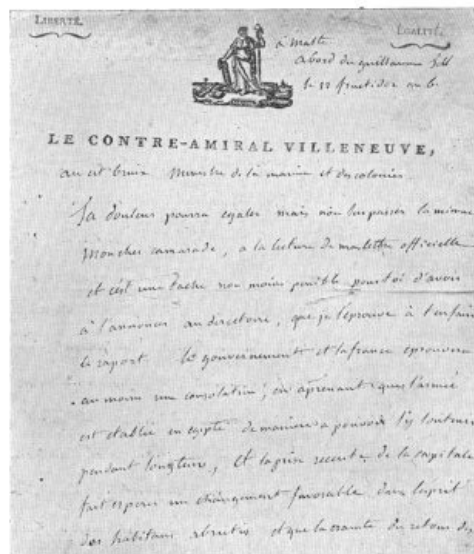 LIBERTÉ.
ÉGALITÉ.
à Malte
a bord du guillaume tell
le 12 fructidor an 6
LE CONTRE-AMIRAL VILLENEUVE,
au cit bruix Ministre de la marine et des colonies
Ta douleur pourra egaler mais non surpasser la mienne
Moncher camarade, a la lecture de ma lettre officielle
et c'est une tache non moins penible pour toi d'avoir
à l'annoncer au directoire, que je l'eprouve à t'en faire
le raport. le gouvernement et la france eprouvera
au moins une consolation, en aprenant que l'armée
est etablie en egypte de maniere a pouvoir s'y soutenir
pendant longtems, Et la prise recente de la capitale
fait esperer un changement favorable dans l'esprit
des habitans abrutis et que la crainte du retour des